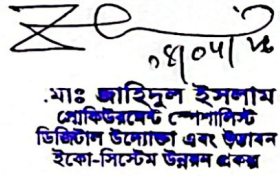 ০৪/০৫/২৬
মোঃ জাহিদুল ইসলাম
প্রোকিউরমেন্ট স্পেশালিস্ট
ডিজিটাল উদ্যোক্তা এবং উদ্ভাবন
ইকো-সিস্টেম উন্নয়ন প্রকল্প